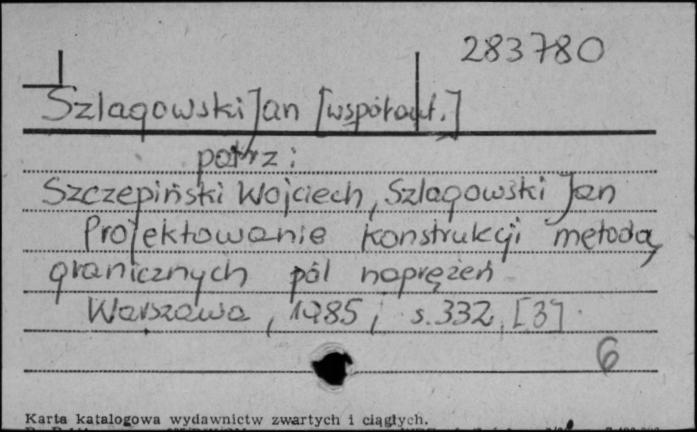 283780
Szlagowski Jan [współaut.]
patrz:
Szczepiński Wojciech, Szlagowski Jan
Projektowanie konstrukcji metodą
granicznych pól naprężeń
Warszawa, 1985, s. 332, [3]
6
Karta katalogowa wydawnictw zwartych i ciągłych.